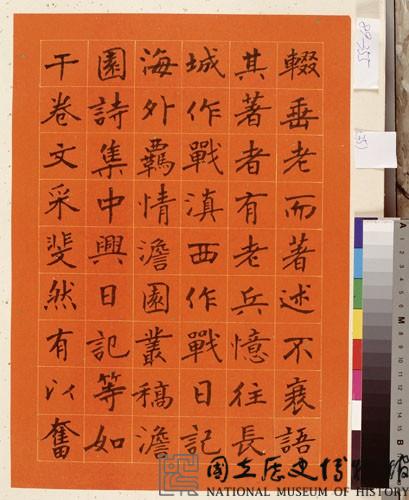 輟垂老而著述不衰語
其著者有老兵憶往長
城作戰滇西作戰日記
海外羈情澹園叢稿澹
園詩集中興日記等如
干卷文采斐然有以奮
國立歷史博物館
NATIONAL MUSEUM OF HISTORY